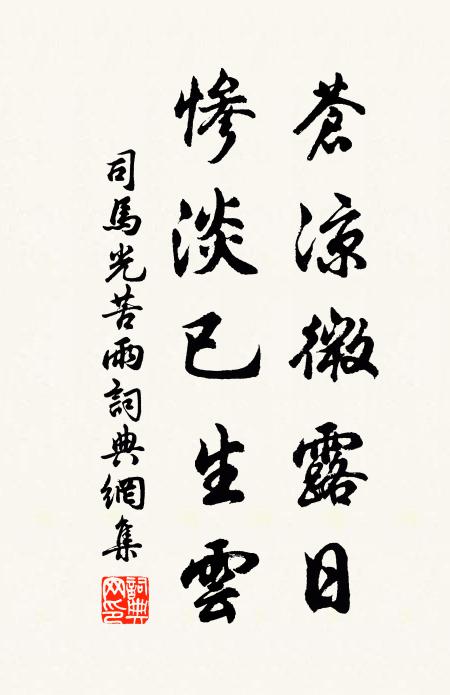 蒼涼微露日
慘淡已生雲
司馬光苦雨詞典網集
詞典網印